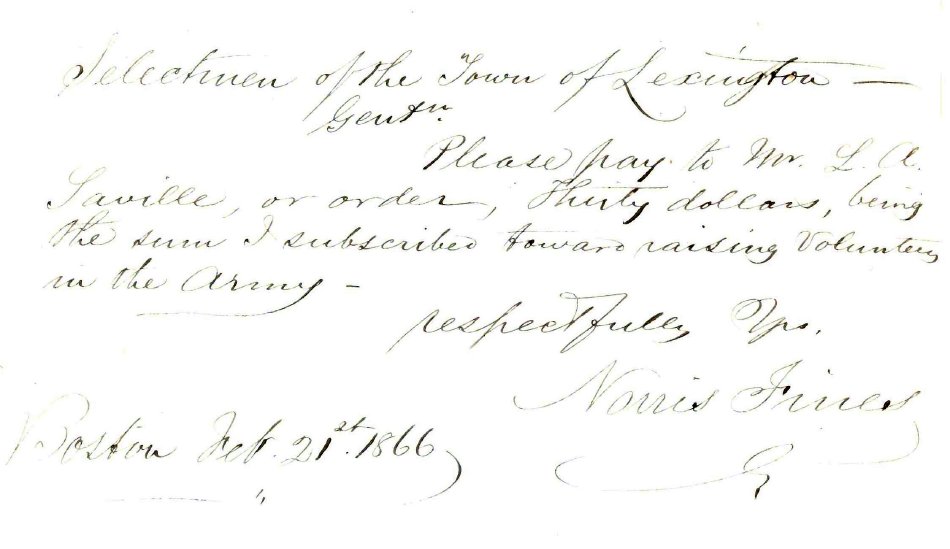 Selectmen of the Town of Lexington —
Gentn.
Please pay to Mr. L. A.
Saville, or order, Thirty dollars, being
the sum I subscribed toward raising Volunteers
in the Army —
respectfully Yrs.
Norris
Boston Feb. 21st. 1866